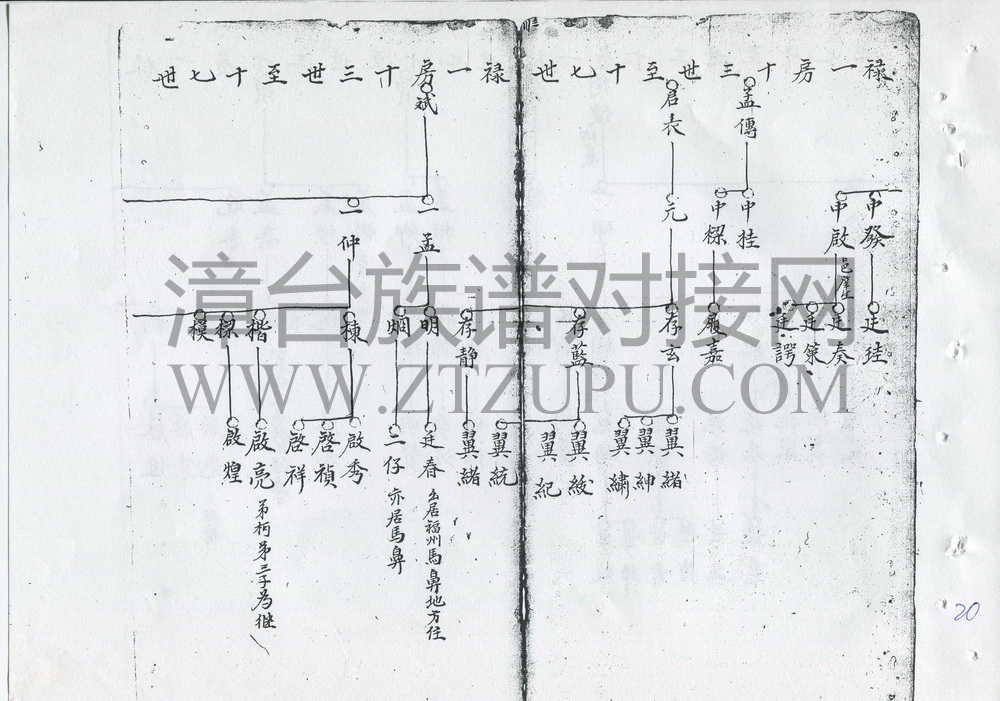 禄一房十三世至十七世
申發
申啟
邑庠
廷珪
廷奏
廷策
廷諤
孟傳
申挂
申樑
履嘉
君衣
元
存玄
存藍
存靜
翼紳
翼繡
翼綬
翼紀
翼統
翼緒
禄一房十三世至十七世
斌
一孟
一仲
明
炯
廷春
出居福州馬鼻地方住
二仔
亦居馬鼻
棟
楷
樑
模
啟秀
啓禎
啓祥
啟亮
弟柯弟三子為继
啟煌
漳台族谱对接网
WWW.ZTZUPU.COM
20